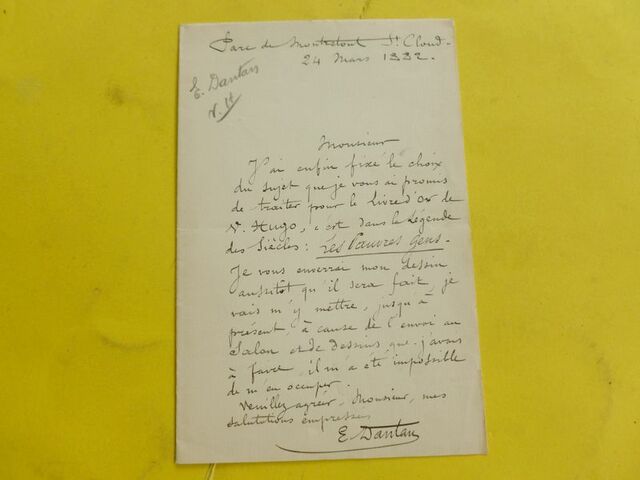 Parc de Montretout St Cloud.
24 Mars 1882.
E. Dantan
Monsieur
J'ai enfin fixé le choix
du sujet que je vous ai promis
de traiter pour le livre d'or de
V. Hugo, c'est dans la Légende
des Siècles : Les Pauvres Gens.
Je vous enverrai mon dessin
aussitôt qu'il sera fait, je
vais m'y mettre, jusqu'à
présent, à cause de l'envoi au
Salon et de dessins que j'avais
à faire, il m'a été impossible
de m'en occuper.
Veuillez agréer, Monsieur, mes
salutations empressées
E. Dantan